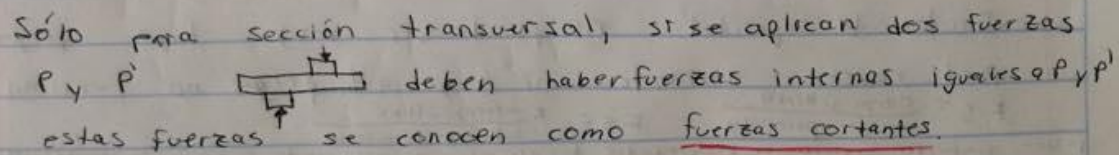 Sólo para sección transversal, si se aplican dos fuerzas
P y P' deben haber fuerzas internas iguales a P y P'
estas fuerzas se conocen como fuerzas cortantes.